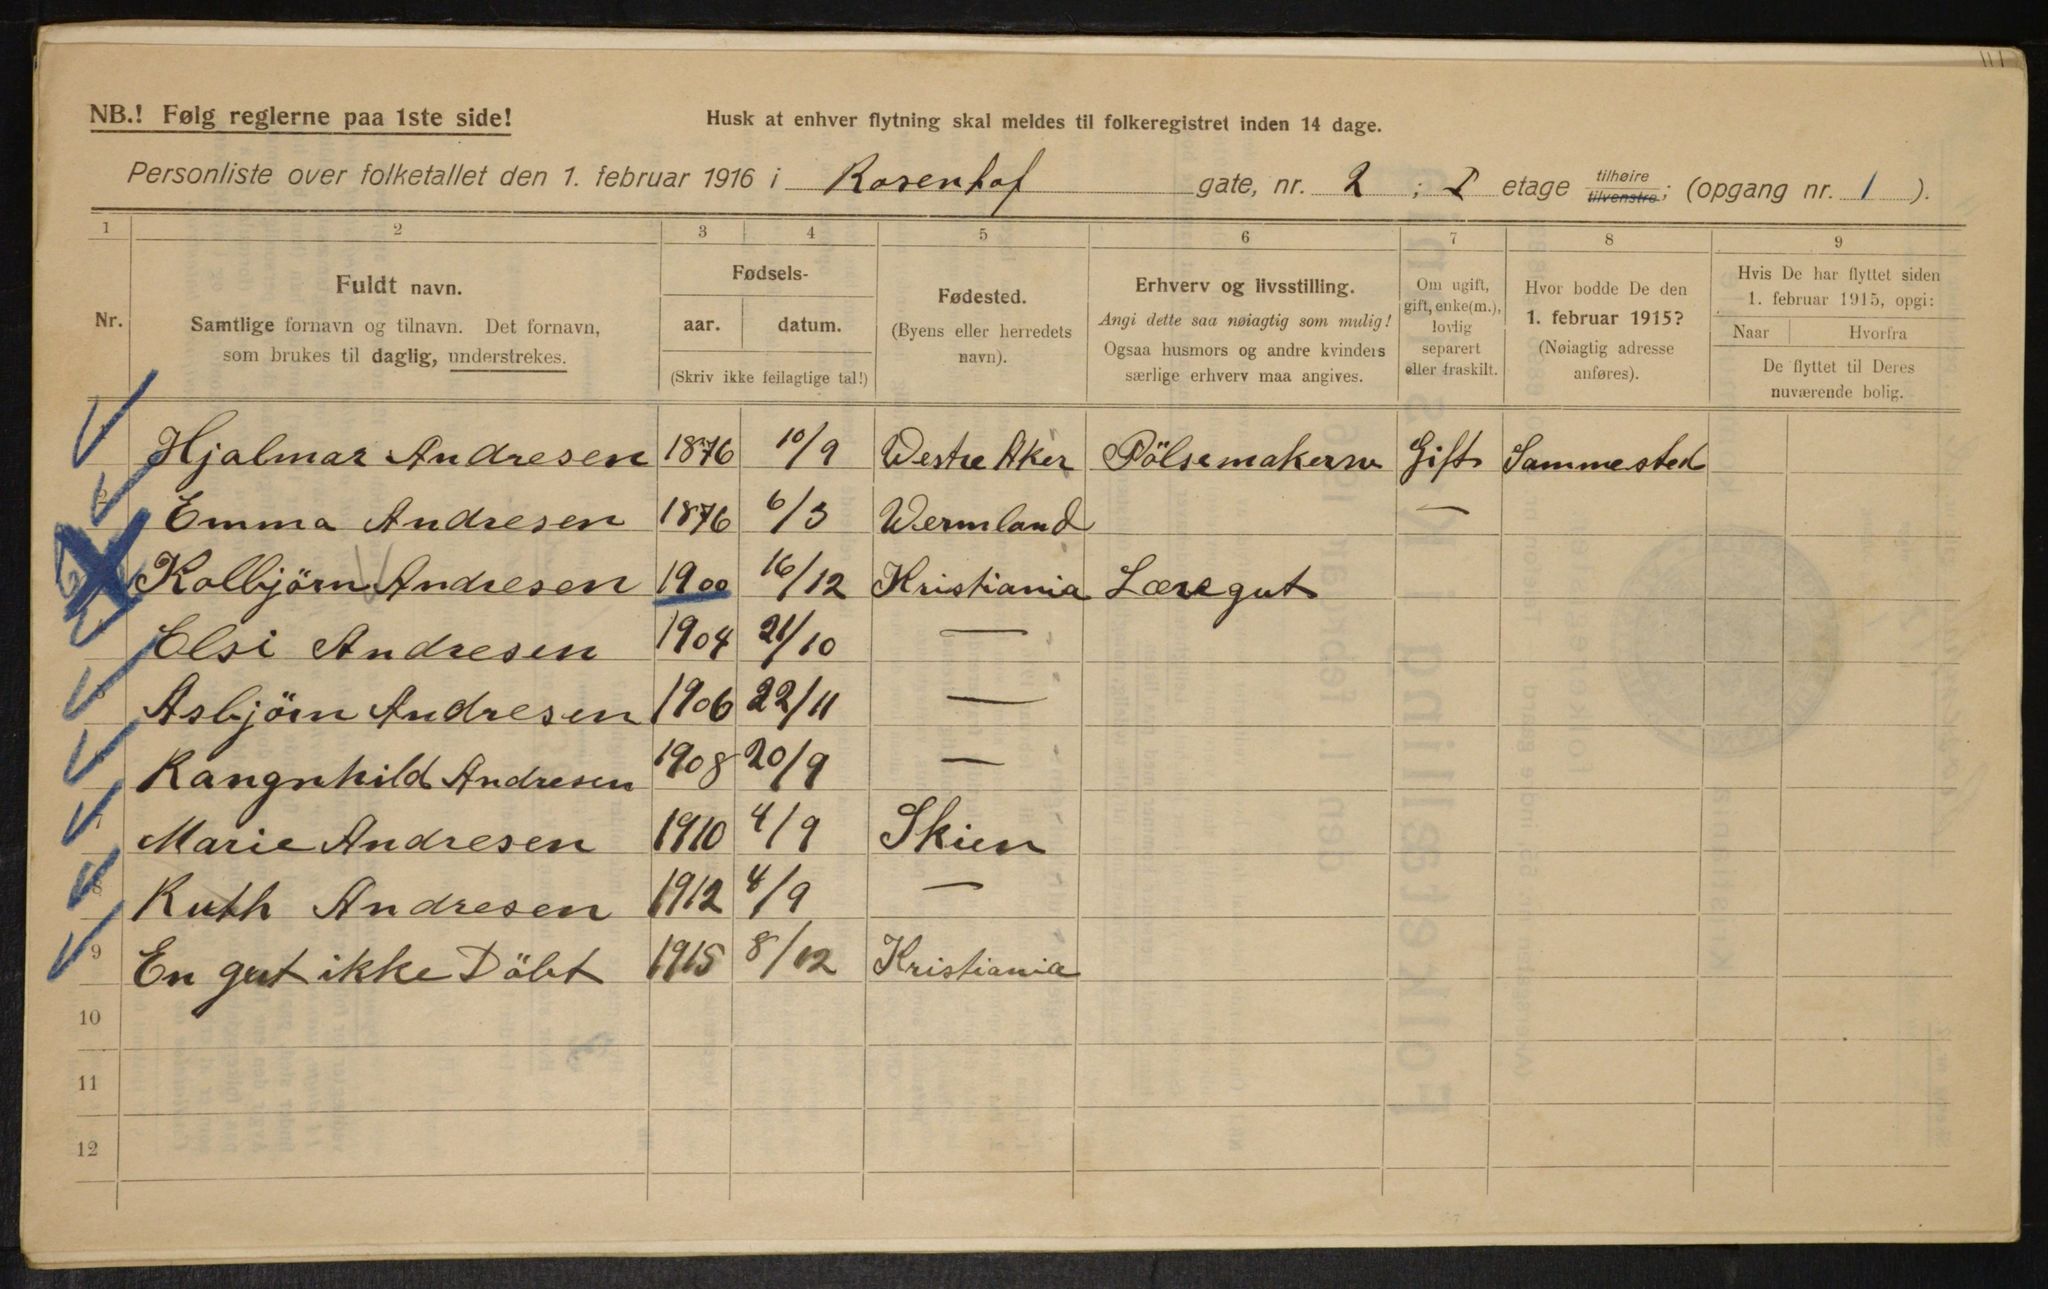 NB.! Følg reglerne paa 1ste side!
Husk at enhver flytning skal meldes til folkeregistret inden 14 dage.
Personliste over folketallet den 1. februar 1916 i Rosenhof gate, nr. 2 ; I etage tilhøire tilvenstre; (opgang nr. 1 ).
1 2 3 4 5 6 7 8 9
Nr.
Fuldt navn.
Samtlige fornavn og tilnavn. Det fornavn,
som brukes til daglig, understrekes.
Fødsels-
aar. datum.
(Skriv ikke feilagtige tal!)
Fødested.
(Byens eller herredets
navn).
Erhverv og livsstilling.
Angi dette saa nøiagtig som mulig!
Ogsaa husmors og andre kvinders
særlige erhverv maa angives.
Om ugift,
gift, enke(m.),
lovlig
separert
eller fraskilt.
Hvor bodde De den
1. februar 1915?
(Nøiagtig adresse
anføres).
Hvis De har flyttet siden
1. februar 1915, opgi:
Naar Hvorfra
De flyttet til Deres
nuværende bolig.
Hjalmar Andresen 1876 10/9 Westre Aker Gift Sammested
Emma Andresen 1876 6/3 Wermland —
Kolbjörn Andresen 1900 16/12 Kristiania Læregut
Elsi Andresen 1904 21/10 —
Asbjörn Andresen 1906 22/11 —
Rangnhild Andresen 1908 20/9 —
Marie Andresen 1910 4/9 Skien
8 Ruth Andresen 1912 4/9 —
9 En gut ikke Döbt 1915 8/12 Kristiania
10
11
12